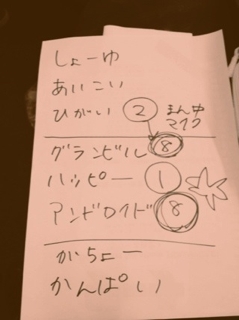 しょーゆ
あいこい
ひがい ② まん中
マイク
グランビル ⑧
ハッピー ①
アンドロイド ⑧
がちょー
かんぱい